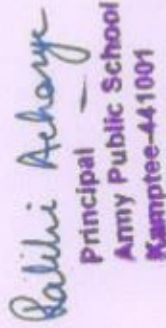 Acharya
Principal
Army Public School
Kamptee-441001